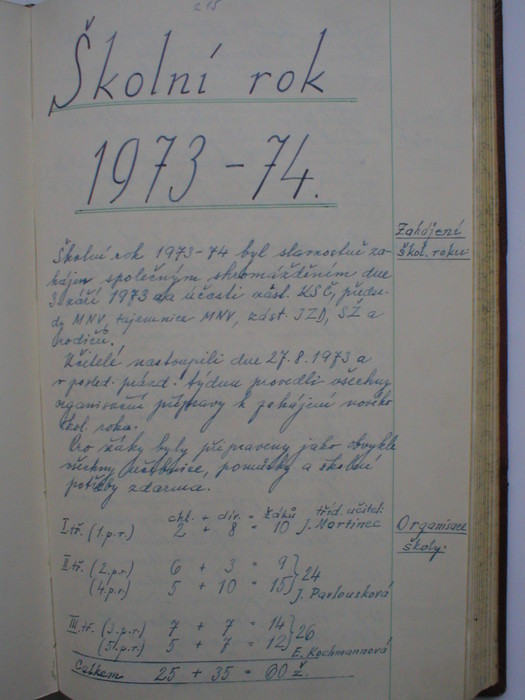 215
Školní rok
1973-74.
Zahájení
škol. roku
Školní rok 1973-74 byl slavnostně za-
hájen společným shromážděním dne
3. září 1973 za účasti zást. KSČ, předse-
dy MNV, tajemnice MNV, zást. JZD, SŽ a
rodičů.
Učitelé nastoupili dne 27.8.1973 a
v posled. prázd. týdnu provedli všechny
organisační přípravy k zahájení nového
škol. roku.
Pro žáky byly připraveny jako obvykle
všechny učebnice, pomůcky a školní
potřeby zdarma.
Organisace
školy.
chl. + dív. = žáků tříd. učitel:
I. tř. (1.p.r.) 2 + 8 = 10 J. Martinec
II. tř. (2.p.r.) 6 + 3 = 9
(4.p.r.) 5 + 10 = 15 } 24
J. Pavlousková
III. tř. (3.p.r.) 7 + 7 = 14
(5.p.r.) 5 + 7 = 12 } 26
E. Kochmannová
Celkem 25 + 35 = 60 ž.